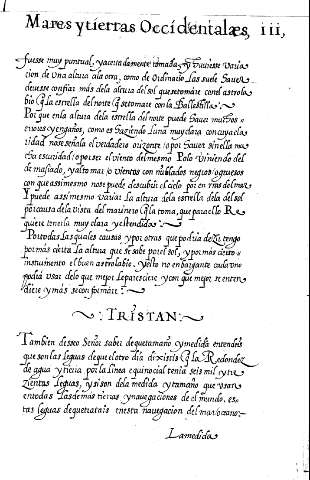 Mares y tierras Occidentales, iii,
fuesse muy puntual, y acertadamente tomada, y si huviesse varia
cion de una altura ala otra, como de ordinario las suele haver
devesse confiar más dela altura del sol que se tomare con el astrola
bio q̃ la estrella del norte q̃ se tomare con la Ballestilla:
Por que enla altura dela estrella del norte puede haver muchos
errores y engaños, como es haziendo luna muy clara con cuya cla
ridad no se señala el verdadero orizonte; o por haver sinella mu
cha escuridad; o por ser el viento del mesmo Polo viniendo del
de masiado, y alto mar; o vientos con nublados negros; o gruesos
con que assimesmo nos puede descubrir el cielo por en çima del mar
Y puede assimesmo variar la altura dela estrella dela del sol
por causa dela vista del marinero q̃ la toma, que para ello Re
quiere tenerla muy clara y estendida:
Por todas las quales causas y por otras que podria dezir tengo
por más çierta la altura que se sabe por el sol, y por más cierto
instrumento el buen astrolabio. y esto no embargante cada uno
podrá usar delo que mejor le paresciere y con que mejor se enten
diere y más se conformare:
TRISTAN:
Tambien desseo Señor saber de que tamaño y medida entendeis
que son las leguas de que el otro dia dixistis q̃ la Redondez
de agua y tierra por la linea equinocial tenia seis mil y tre
zientas leguas, y si son dela medida y tamaño que usan
en todas las demás tierras y navegaciones de el mundo. es
tas leguas de que tratais en esta navegacion del mar oceano:
La medida